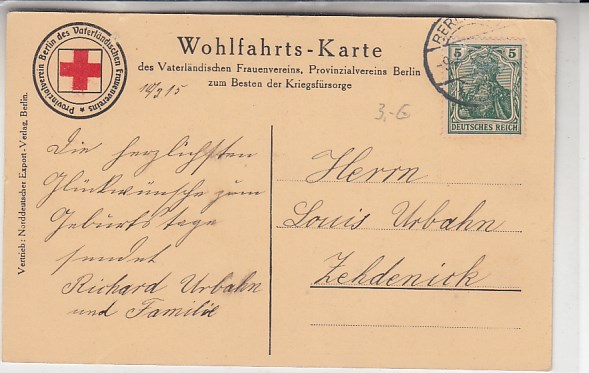 Provinzialverein Berlin des Vaterländischen Frauenvereins
Wohlfahrts-Karte
des Vaterländischen Frauenvereins, Provinzialvereins Berlin
zum Besten der Kriegsfürsorge
Vertrieb: Norddeutscher Export-Verlag, Berlin.
Die herzlichsten
Glückwünsche zum
Geburtstage
sendet
Richard Urbahn
und Familie
BER
5 5
DEUTSCHES REICH
3,-G
Herrn
Louis Urbahn
Zehdenick